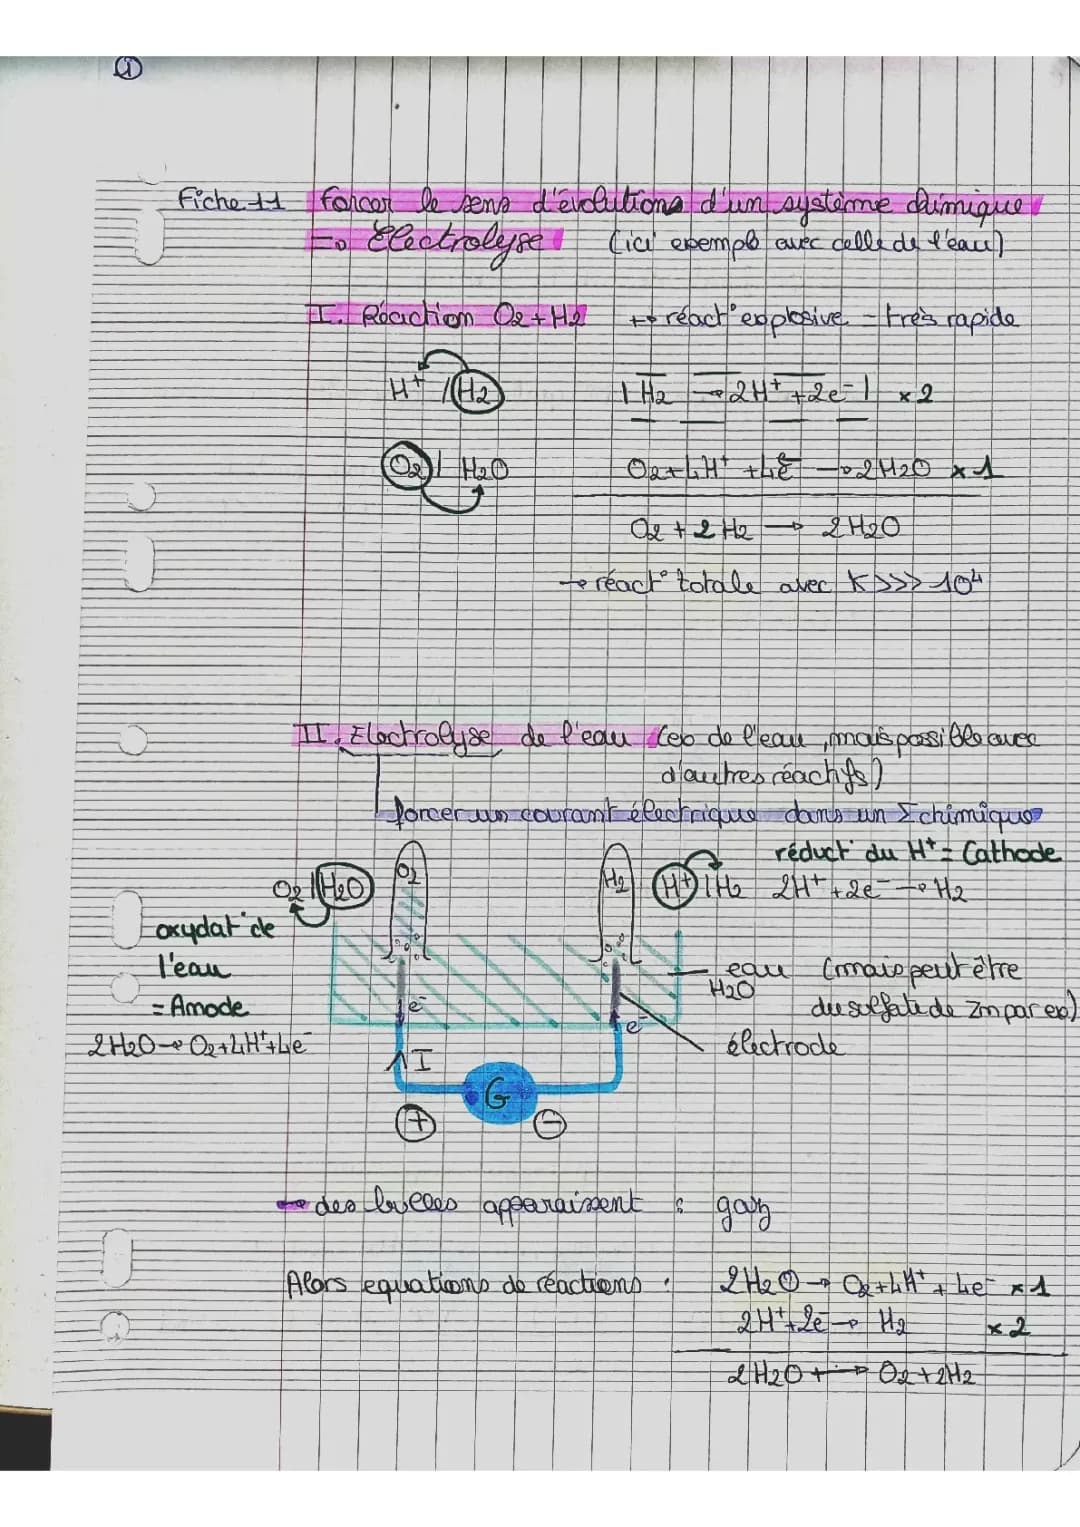 ①
Fiche 11 Forcer le sens d'évolutions d'un système chimique
⇒ Electrolyse (ici exemple avec celle de l'eau)
I. Réaction O2+H2 ↔ réact° explosive - très rapide
H+ / H2 | H2 → 2H+ + 2e- | × 2
O2 / H2O O2 + 4H+ + 4e- → 2H2O × 1
O2 + 2H2 → 2H2O
→ réact° totale avec K >>> 10⁴
II. Electrolyse de l'eau (ex de l'eau, mais possible avec
d'autres réactifs)
forcer un courant électrique dans un Σ chimique
réduct° du H+ = Cathode
O2 / H2O O2 H2 H+ / H2 2H+ + 2e- → H2
oxydat° de
l'eau
= Anode
2H2O → O2+4H++4e-
eau (mais peut être
H2O du sulfate de Zn par ex)
e- e- électrode
I
G
+ -
→ des bulles apparaissent : gaz
Alors equations de réactions : 2H2O → O2+4H+ + 4e- × 1
2H+ + 2e- → H2 × 2
2H2O + → O2+2H2